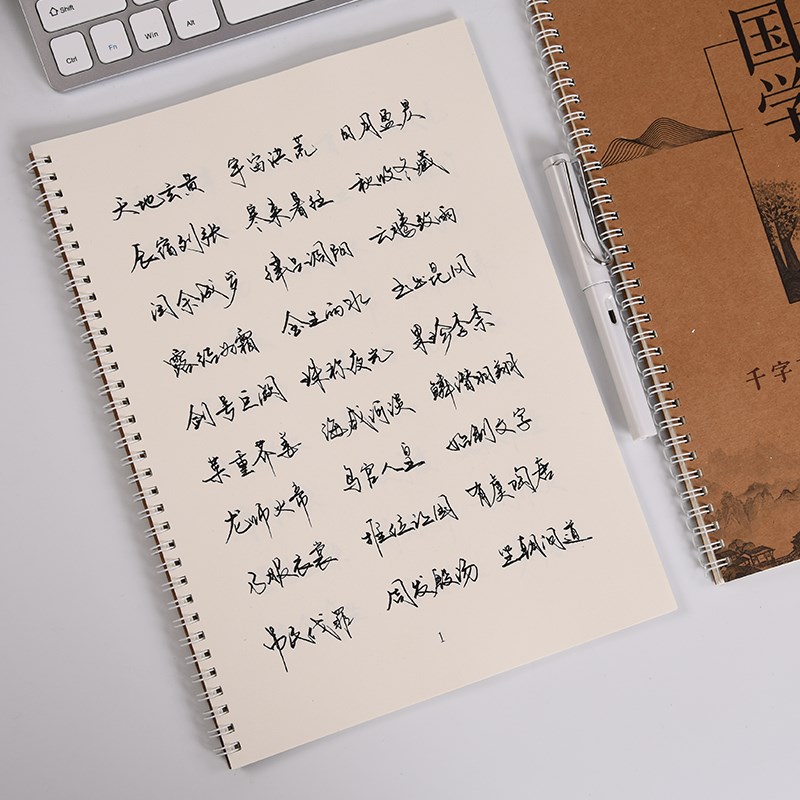 Shift
Ctrl Fn Win Alt
天地玄黄 宇宙洪荒 日月盈昃
辰宿列张 寒来暑往 秋收冬藏
闰余成岁 律吕调阳 云腾致雨
露结为霜 金生丽水 玉出昆冈
剑号巨阙 珠称夜光 果珍李柰
菜重芥姜 海咸河淡 鳞潜羽翔
龙师火帝 鸟官人皇 始制文字
乃服衣裳 推位让国 有虞陶唐
吊民伐罪 周发殷汤 坐朝问道
1
国学
千字